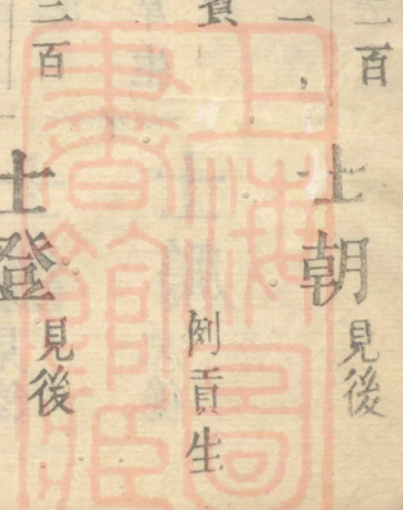 二百
士朝 見後
一
貢
例貢生
三百
士登 見後
上海圖
書館藏